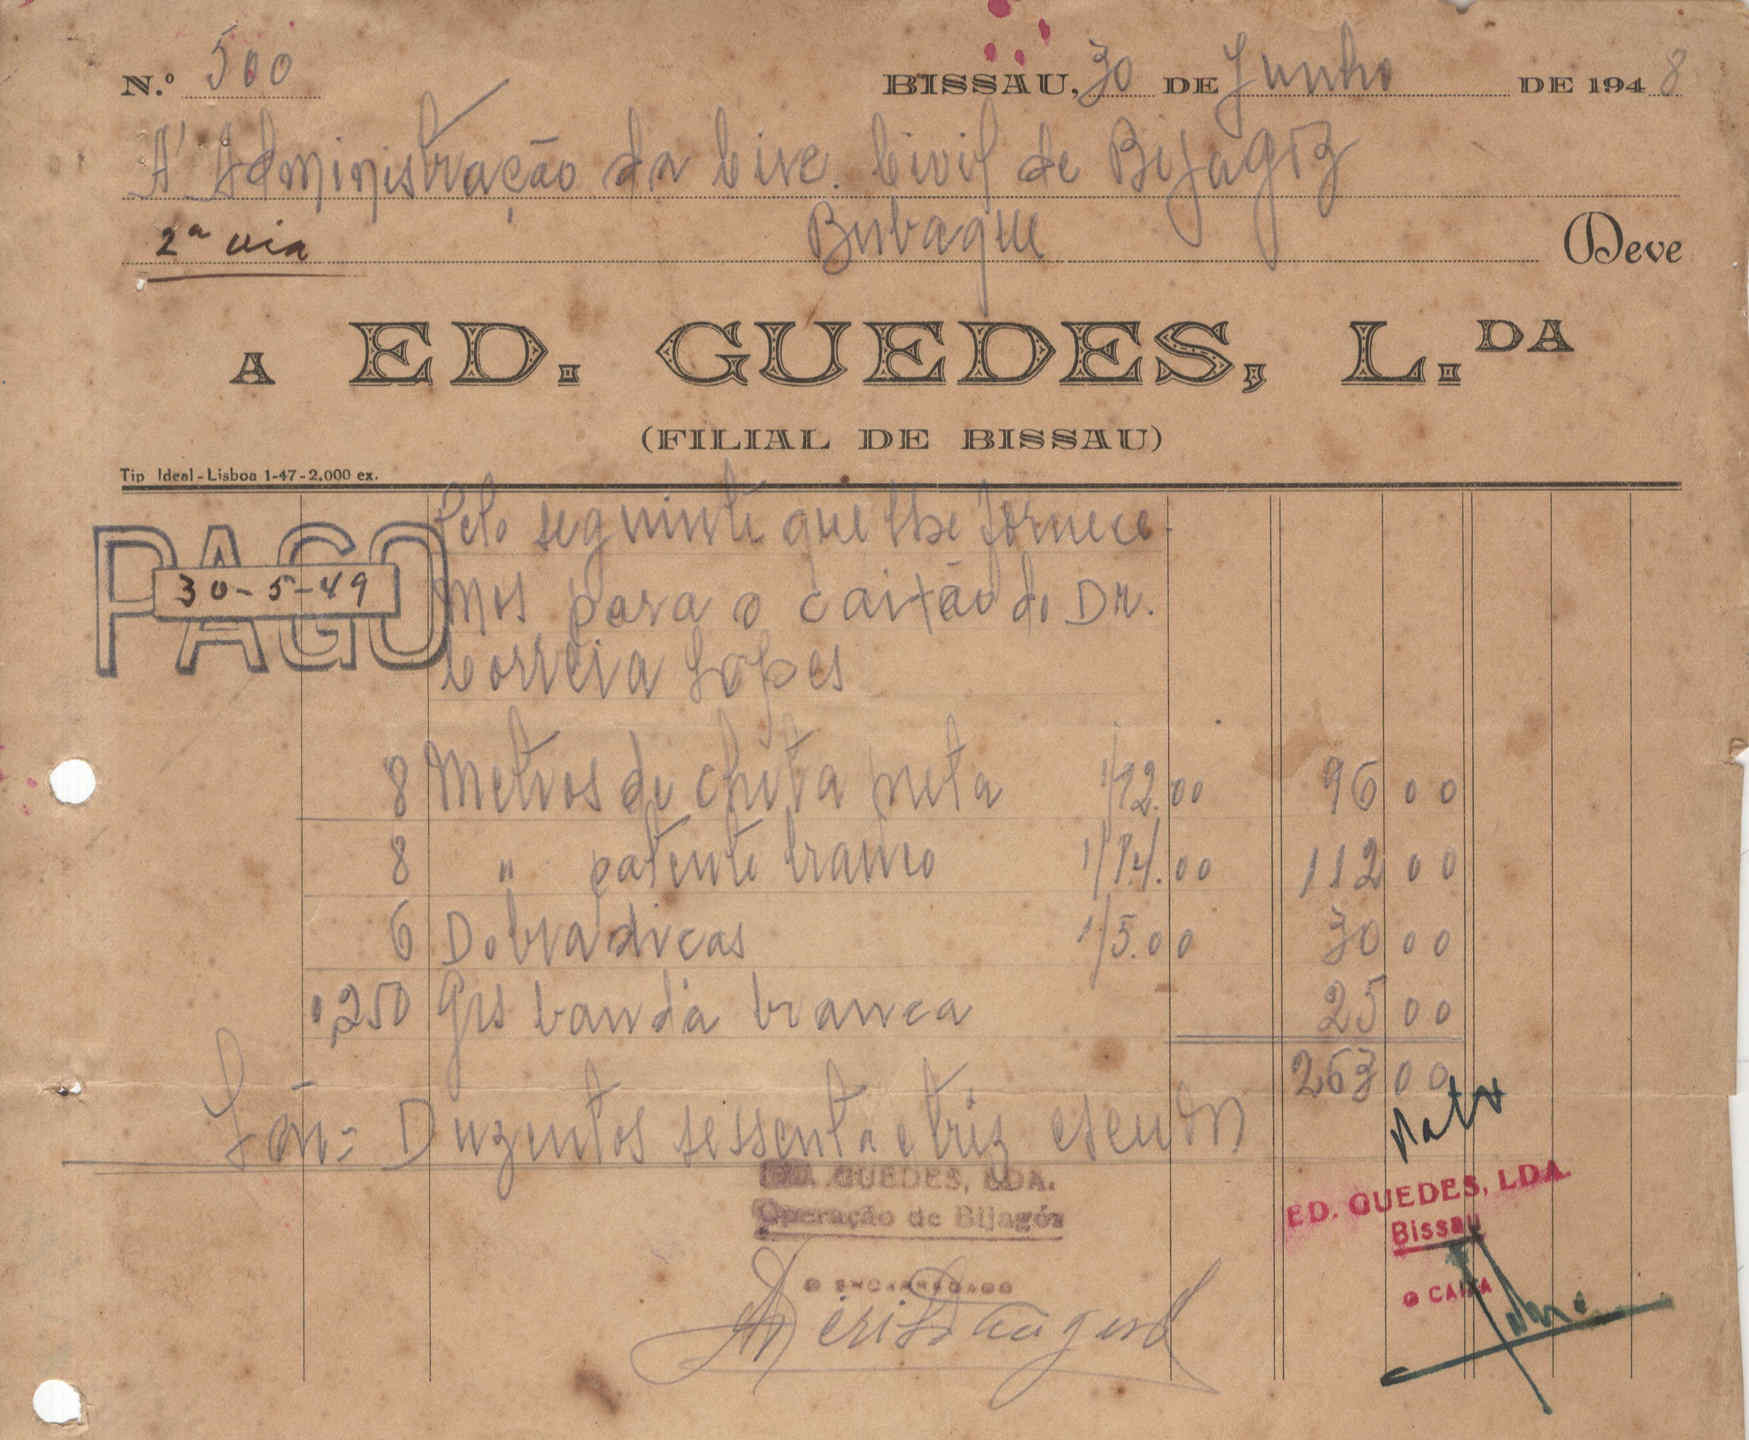 N.º 500 BISSAU, 30 DE Junho DE 1948
A' Administração da Circ. Civil de Bijagoz
2ª via Bubaque Deve
A ED. GUEDES, L.DA
(FILIAL DE BISSAU)
Tip Ideal - Lisboa 1-47 - 2.000 ex.
Pelo seguinte que lhe fornece-
PAGO
30-5-49
mos para o caixão do Dr.
Correia Lopes
8 Metros de chita preta 1/12.00 96 00
8 " patente branco 1/14.00 112 00
6 Dobradicas 1/5.00 30 00
0,250 Grs banda branca 25 00
263 00
São = Duzentos sessenta e triz escudos
ED. GUEDES, LDA.
Operação de Bijagós
O ENCARREGADO
ED. GUEDES, LDA.
Bissau
O CAIXA